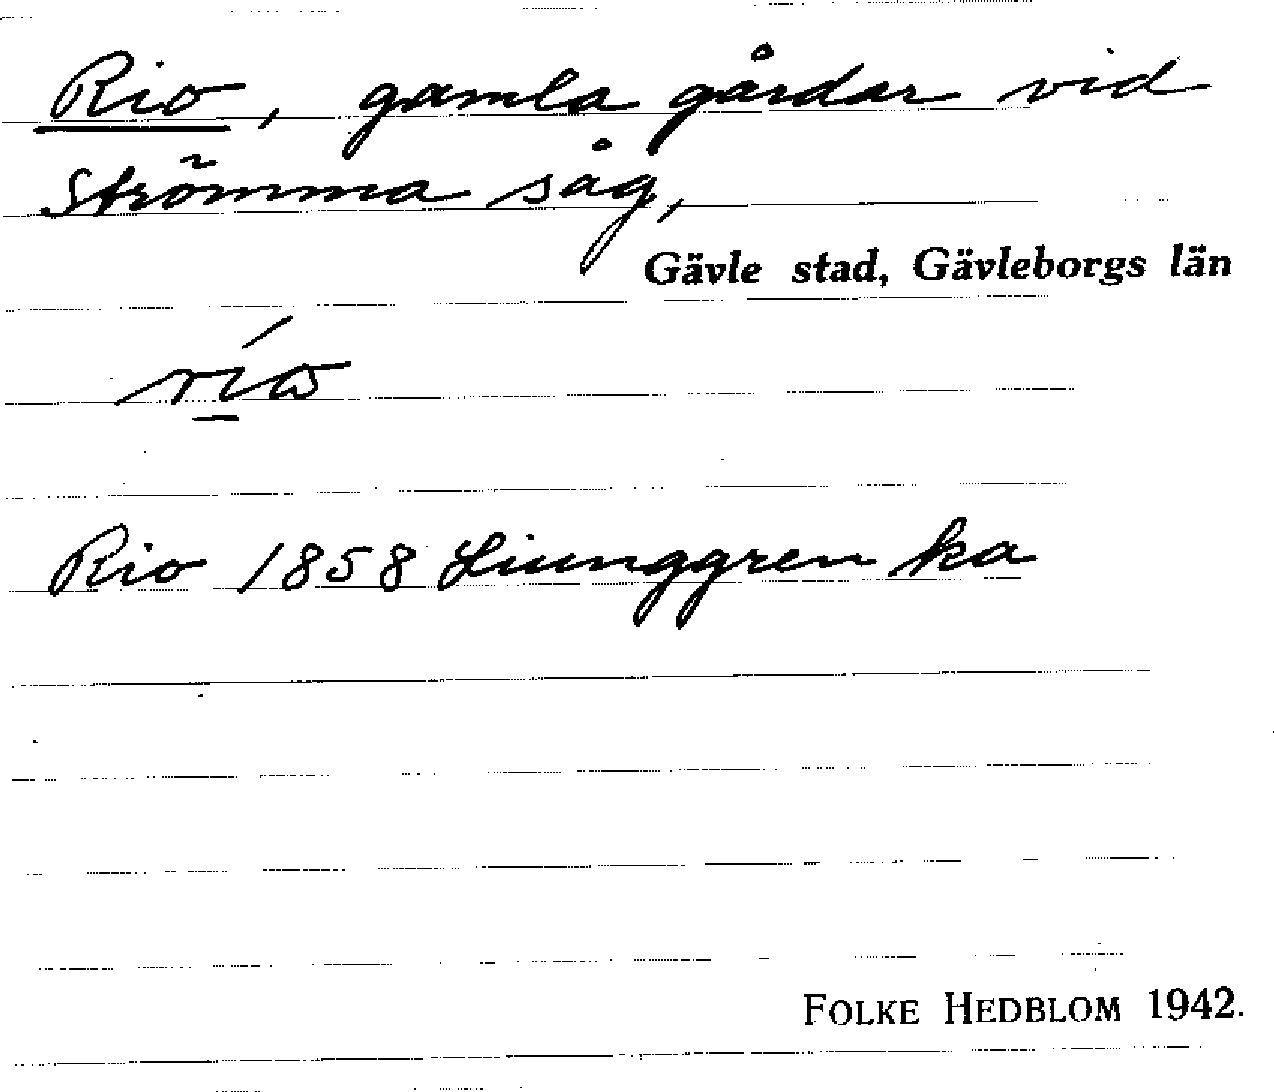 Rio, gamla gårdar vid
Strömma såg,
Gävle stad, Gävleborgs län
Rio 1858 Liunggren ka
FOLKE HEDBLOM 1942.